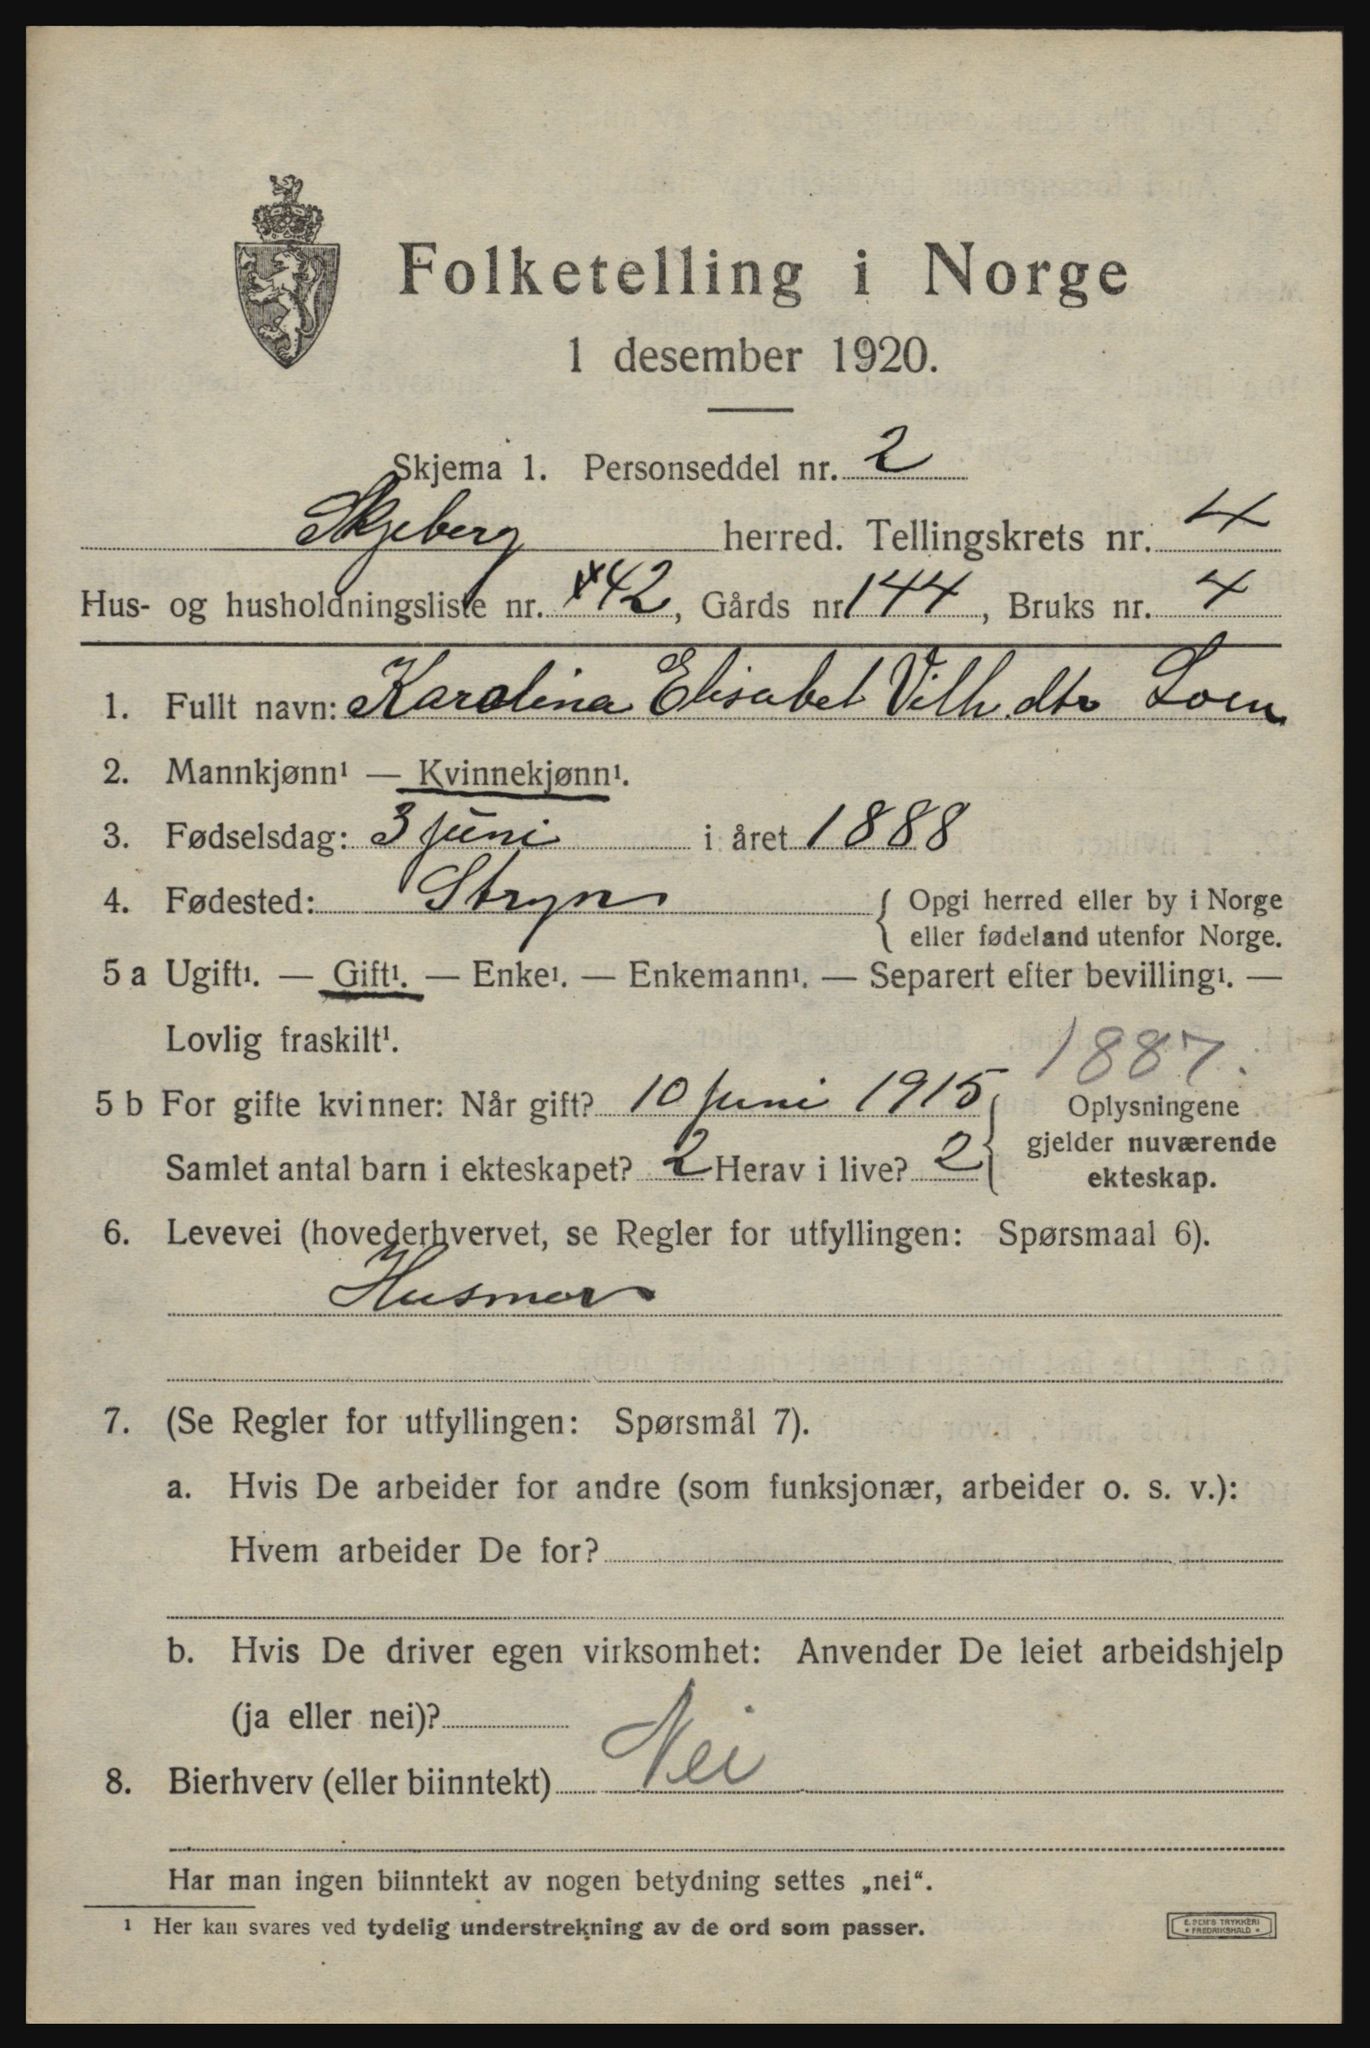 Folketelling i Norge
1 desember 1920.
Skjema 1. Personseddel nr. 2
Skjeberg herred. Tellingskrets nr. 4
Hus- og husholdningsliste nr. 42, Gårds nr. 144, Bruks nr. 4
1. Fullt navn: Karolina Elisabet Vilh. dtr Loen
2. Mannkjønn¹ — Kvinnekjønn¹.
3. Fødselsdag: 3 juni i året 1888
4. Fødested: Stryn { Opgi herred eller by i Norge
eller fødeland utenfor Norge.
5 a Ugift¹. — Gift¹. — Enke¹. — Enkemann¹. — Separert efter bevilling¹. —
Lovlig fraskilt¹.
1887.
5 b For gifte kvinner: Når gift? 10 juni 1915 { Oplysningene
gjelder nuværende
ekteskap.
Samlet antal barn i ekteskapet? 2 Herav i live? 2
6. Levevei (hovederhvervet, se Regler for utfyllingen: Spørsmaal 6).
Husmor
7. (Se Regler for utfyllingen: Spørsmål 7).
a. Hvis De arbeider for andre (som funksjonær, arbeider o. s. v.):
Hvem arbeider De for?
b. Hvis De driver egen virksomhet: Anvender De leiet arbeidshjelp
(ja eller nei)?
8. Bierhverv (eller biinntekt) Nei
Har man ingen biinntekt av nogen betydning settes „nei“.
¹ Her kan svares ved tydelig understrekning av de ord som passer.
E. SEM'S TRYKKERI
* FREDRIKSHALD *